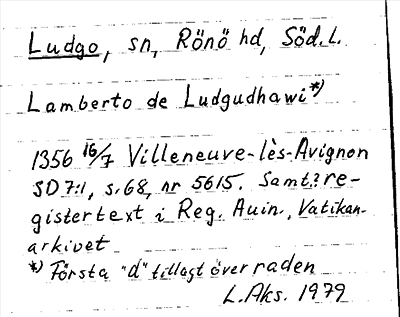 Ludgo, sn, Rönö hd, Söd. l.
Lamberto de Ludgudhawi *)
1356 16/7 Villeneuve-lès-Avignon
SD 7:1, s. 68, nr 5615. Samt.? re-
gistertext i Reg. Auin., Vatikan-
arkivet
*) Första "d" tillagt över raden
L. Aks. 1979